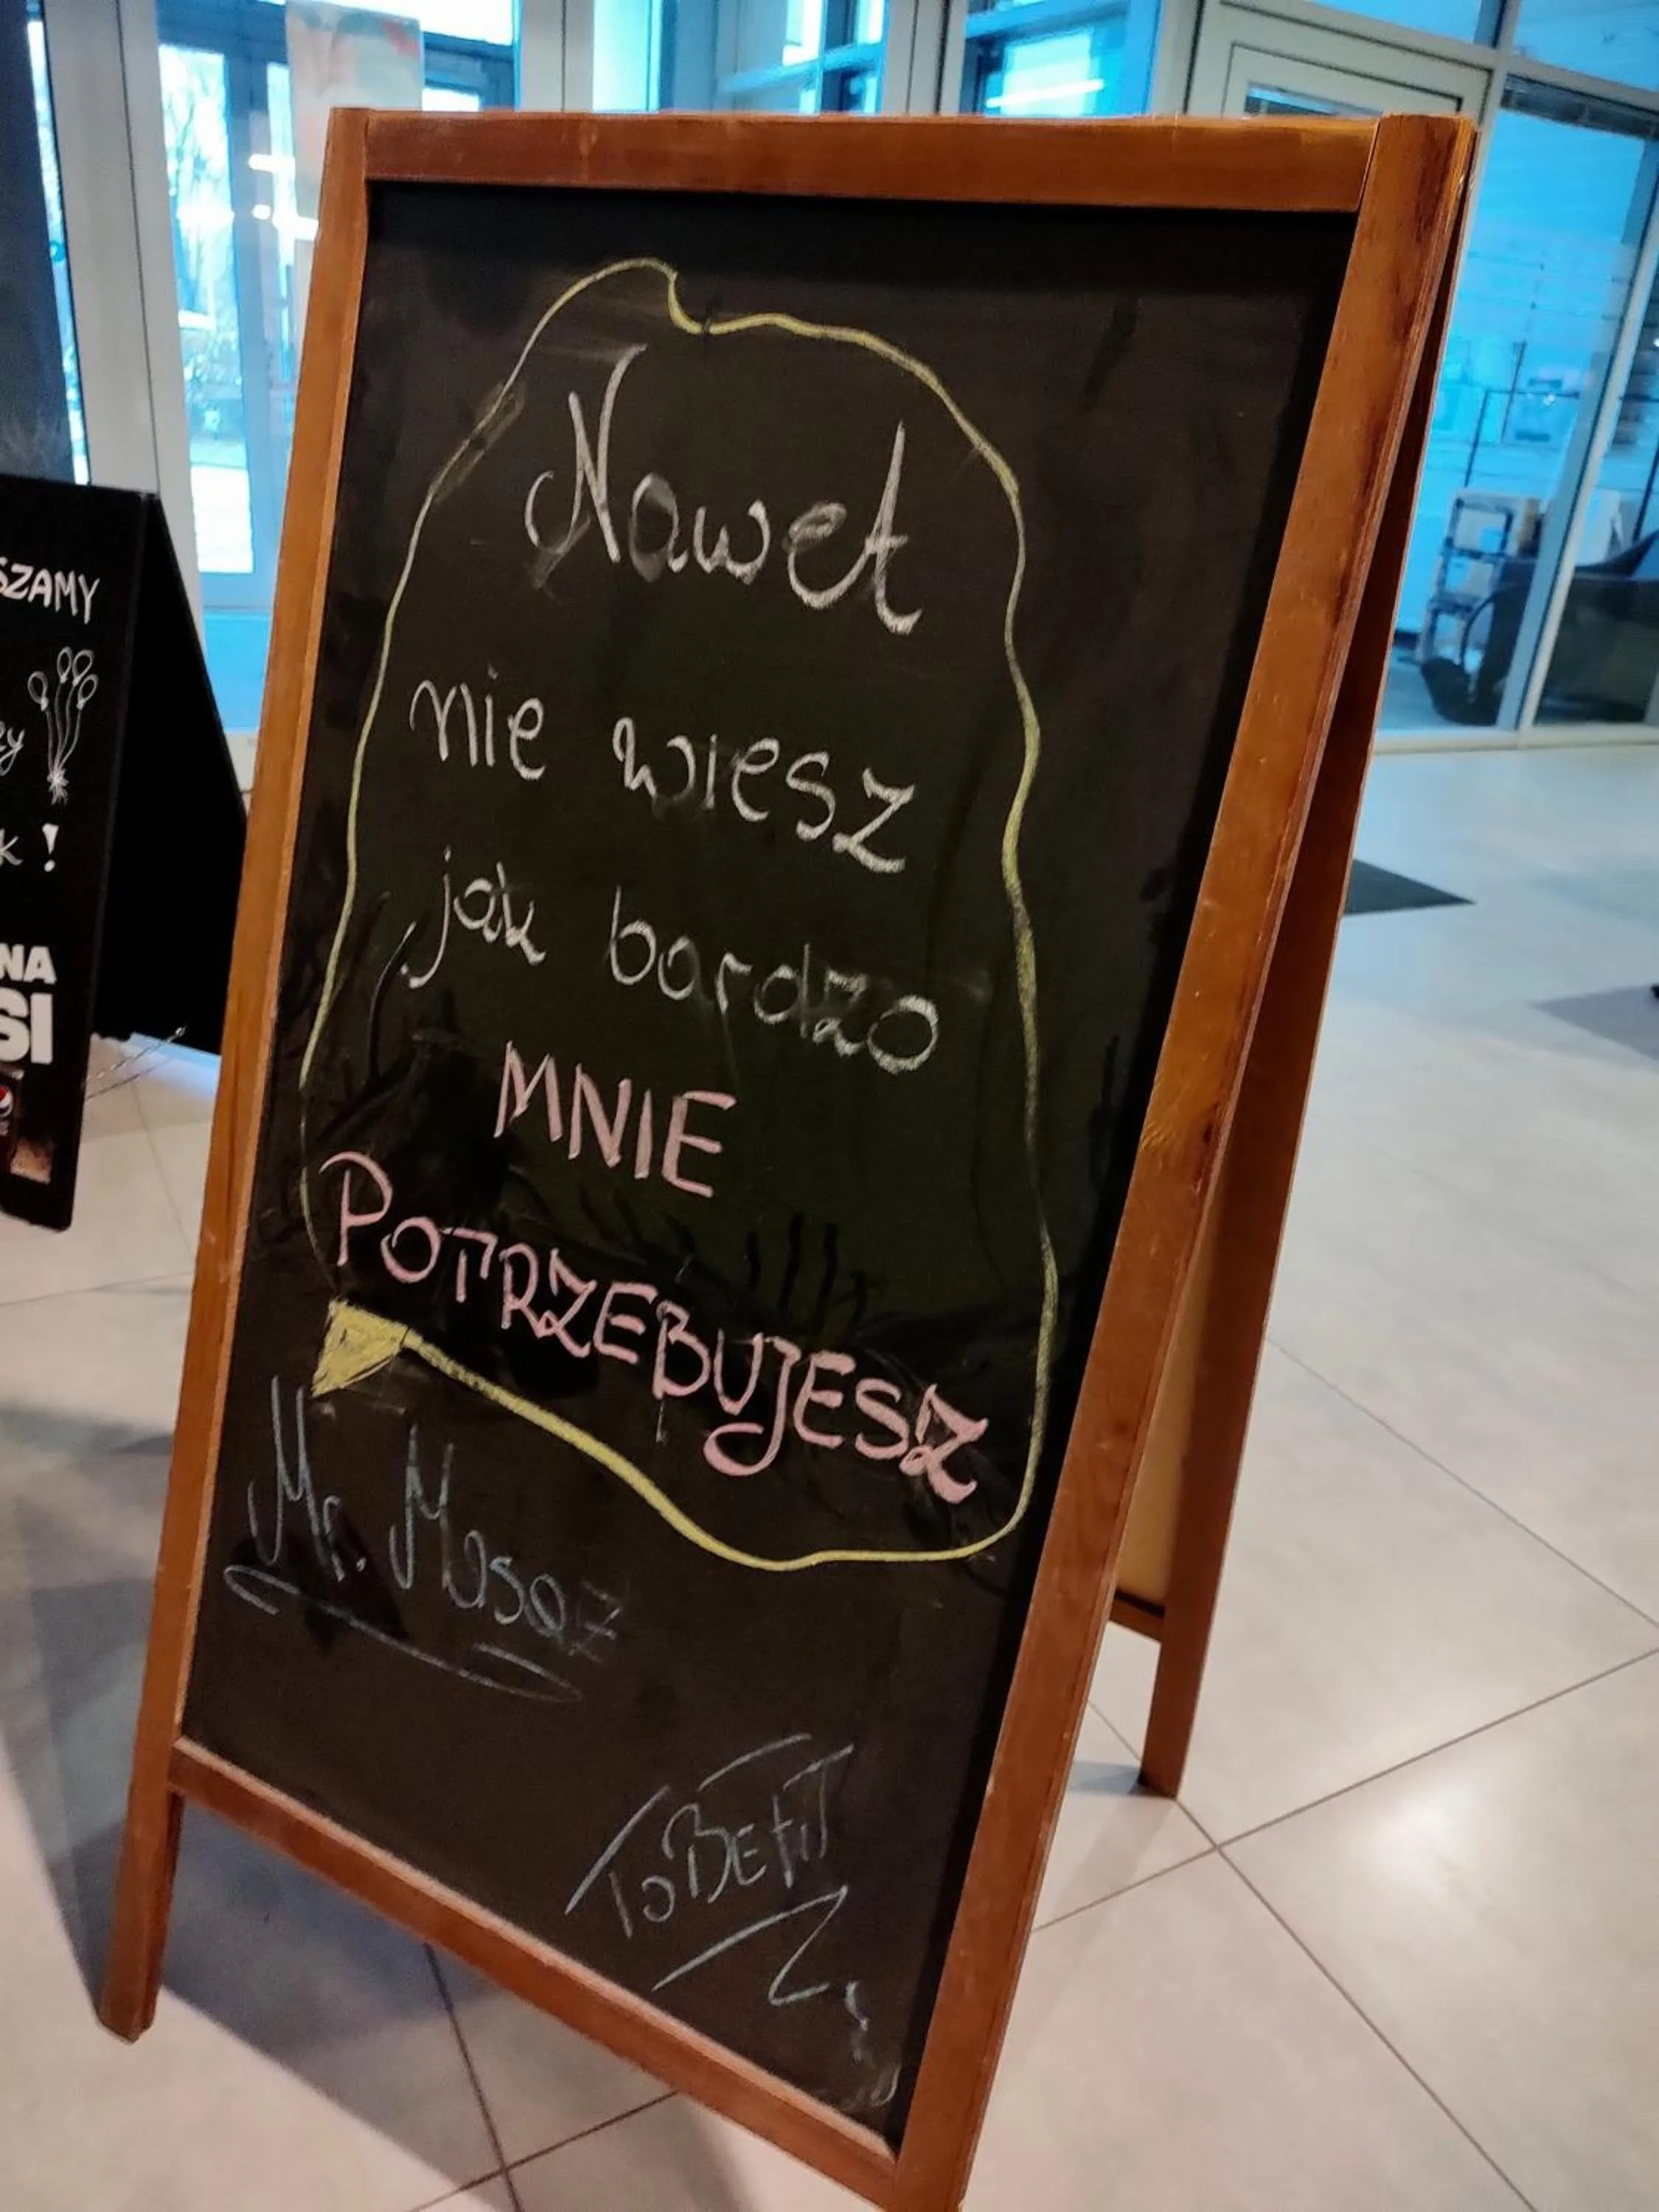 Nawet
nie wiesz
jak bardzo
MNIE
POTRZEBUJESZ
Mr. Masaż
ToBEfiT
SZAMY
k!
NA
SI